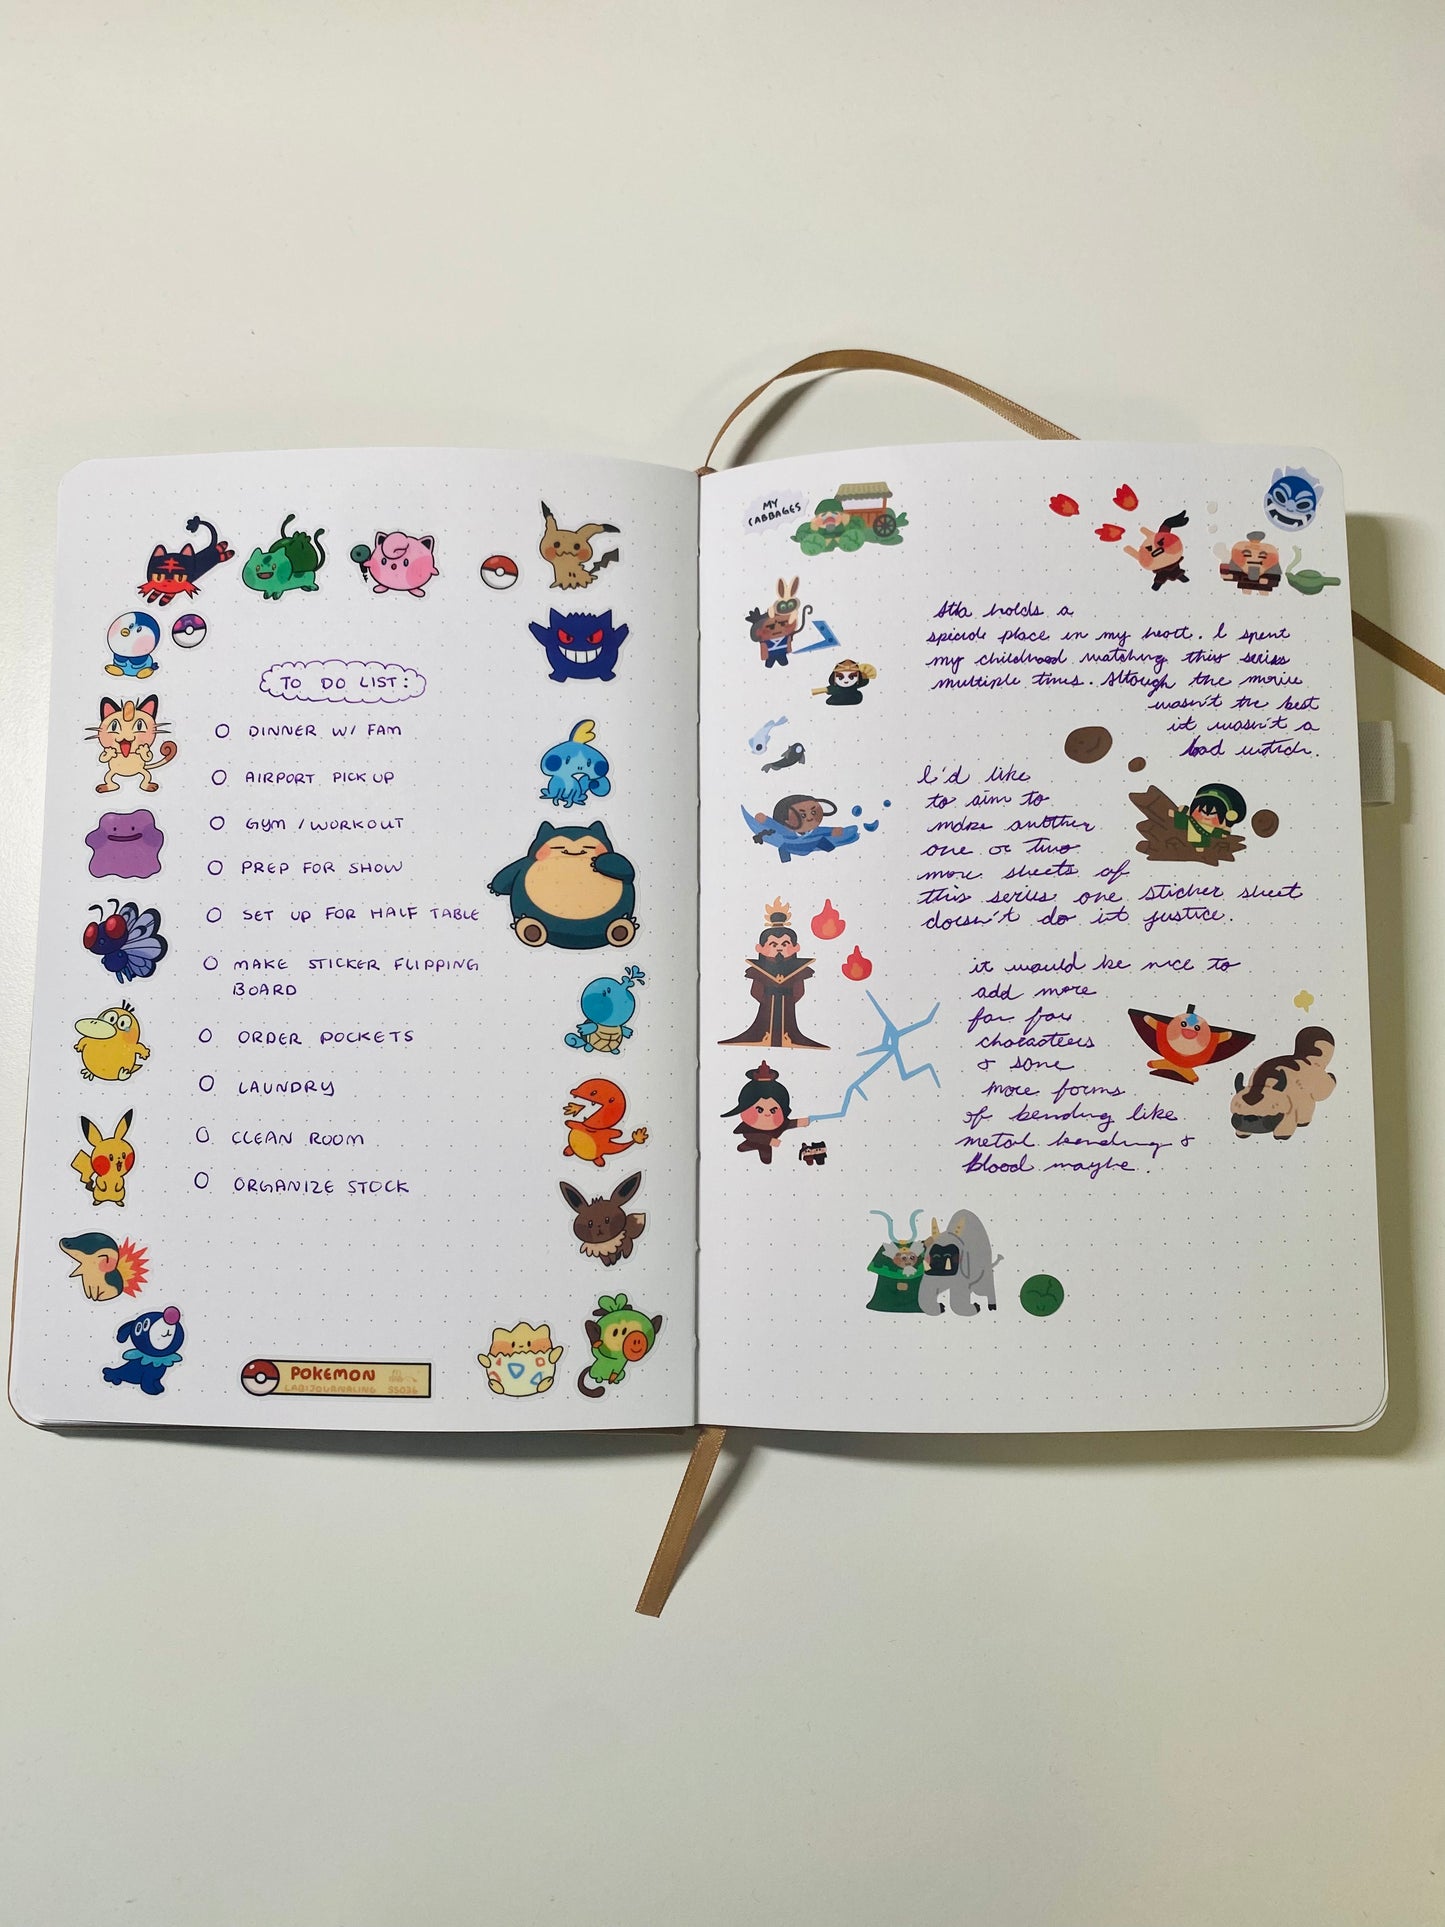 TO DO LIST:
O DINNER W/ FAM
O AIRPORT PICK UP
O GYM / WORKOUT
O PREP FOR SHOW
O SET UP FOR HALF TABLE
O MAKE STICKER FLIPPING
BOARD
O ORDER POCKETS
O LAUNDRY
O CLEAN ROOM
O ORGANIZE STOCK
POKEMON
LABIJOURNALING SS036
MY
CABBAGES
holds a
place in my heart. I spent
my childhood watching this series
multiple times. Although the movie
wasn't the best
it wasn't a
bad watch.
I'd like
to aim to
make another
one or two
more sheets of
this series one sticker sheet
doesn't do it justice.
it would be nice to
add more
characters
& some
more forms
of bending like
metal bending &
Blood maybe.